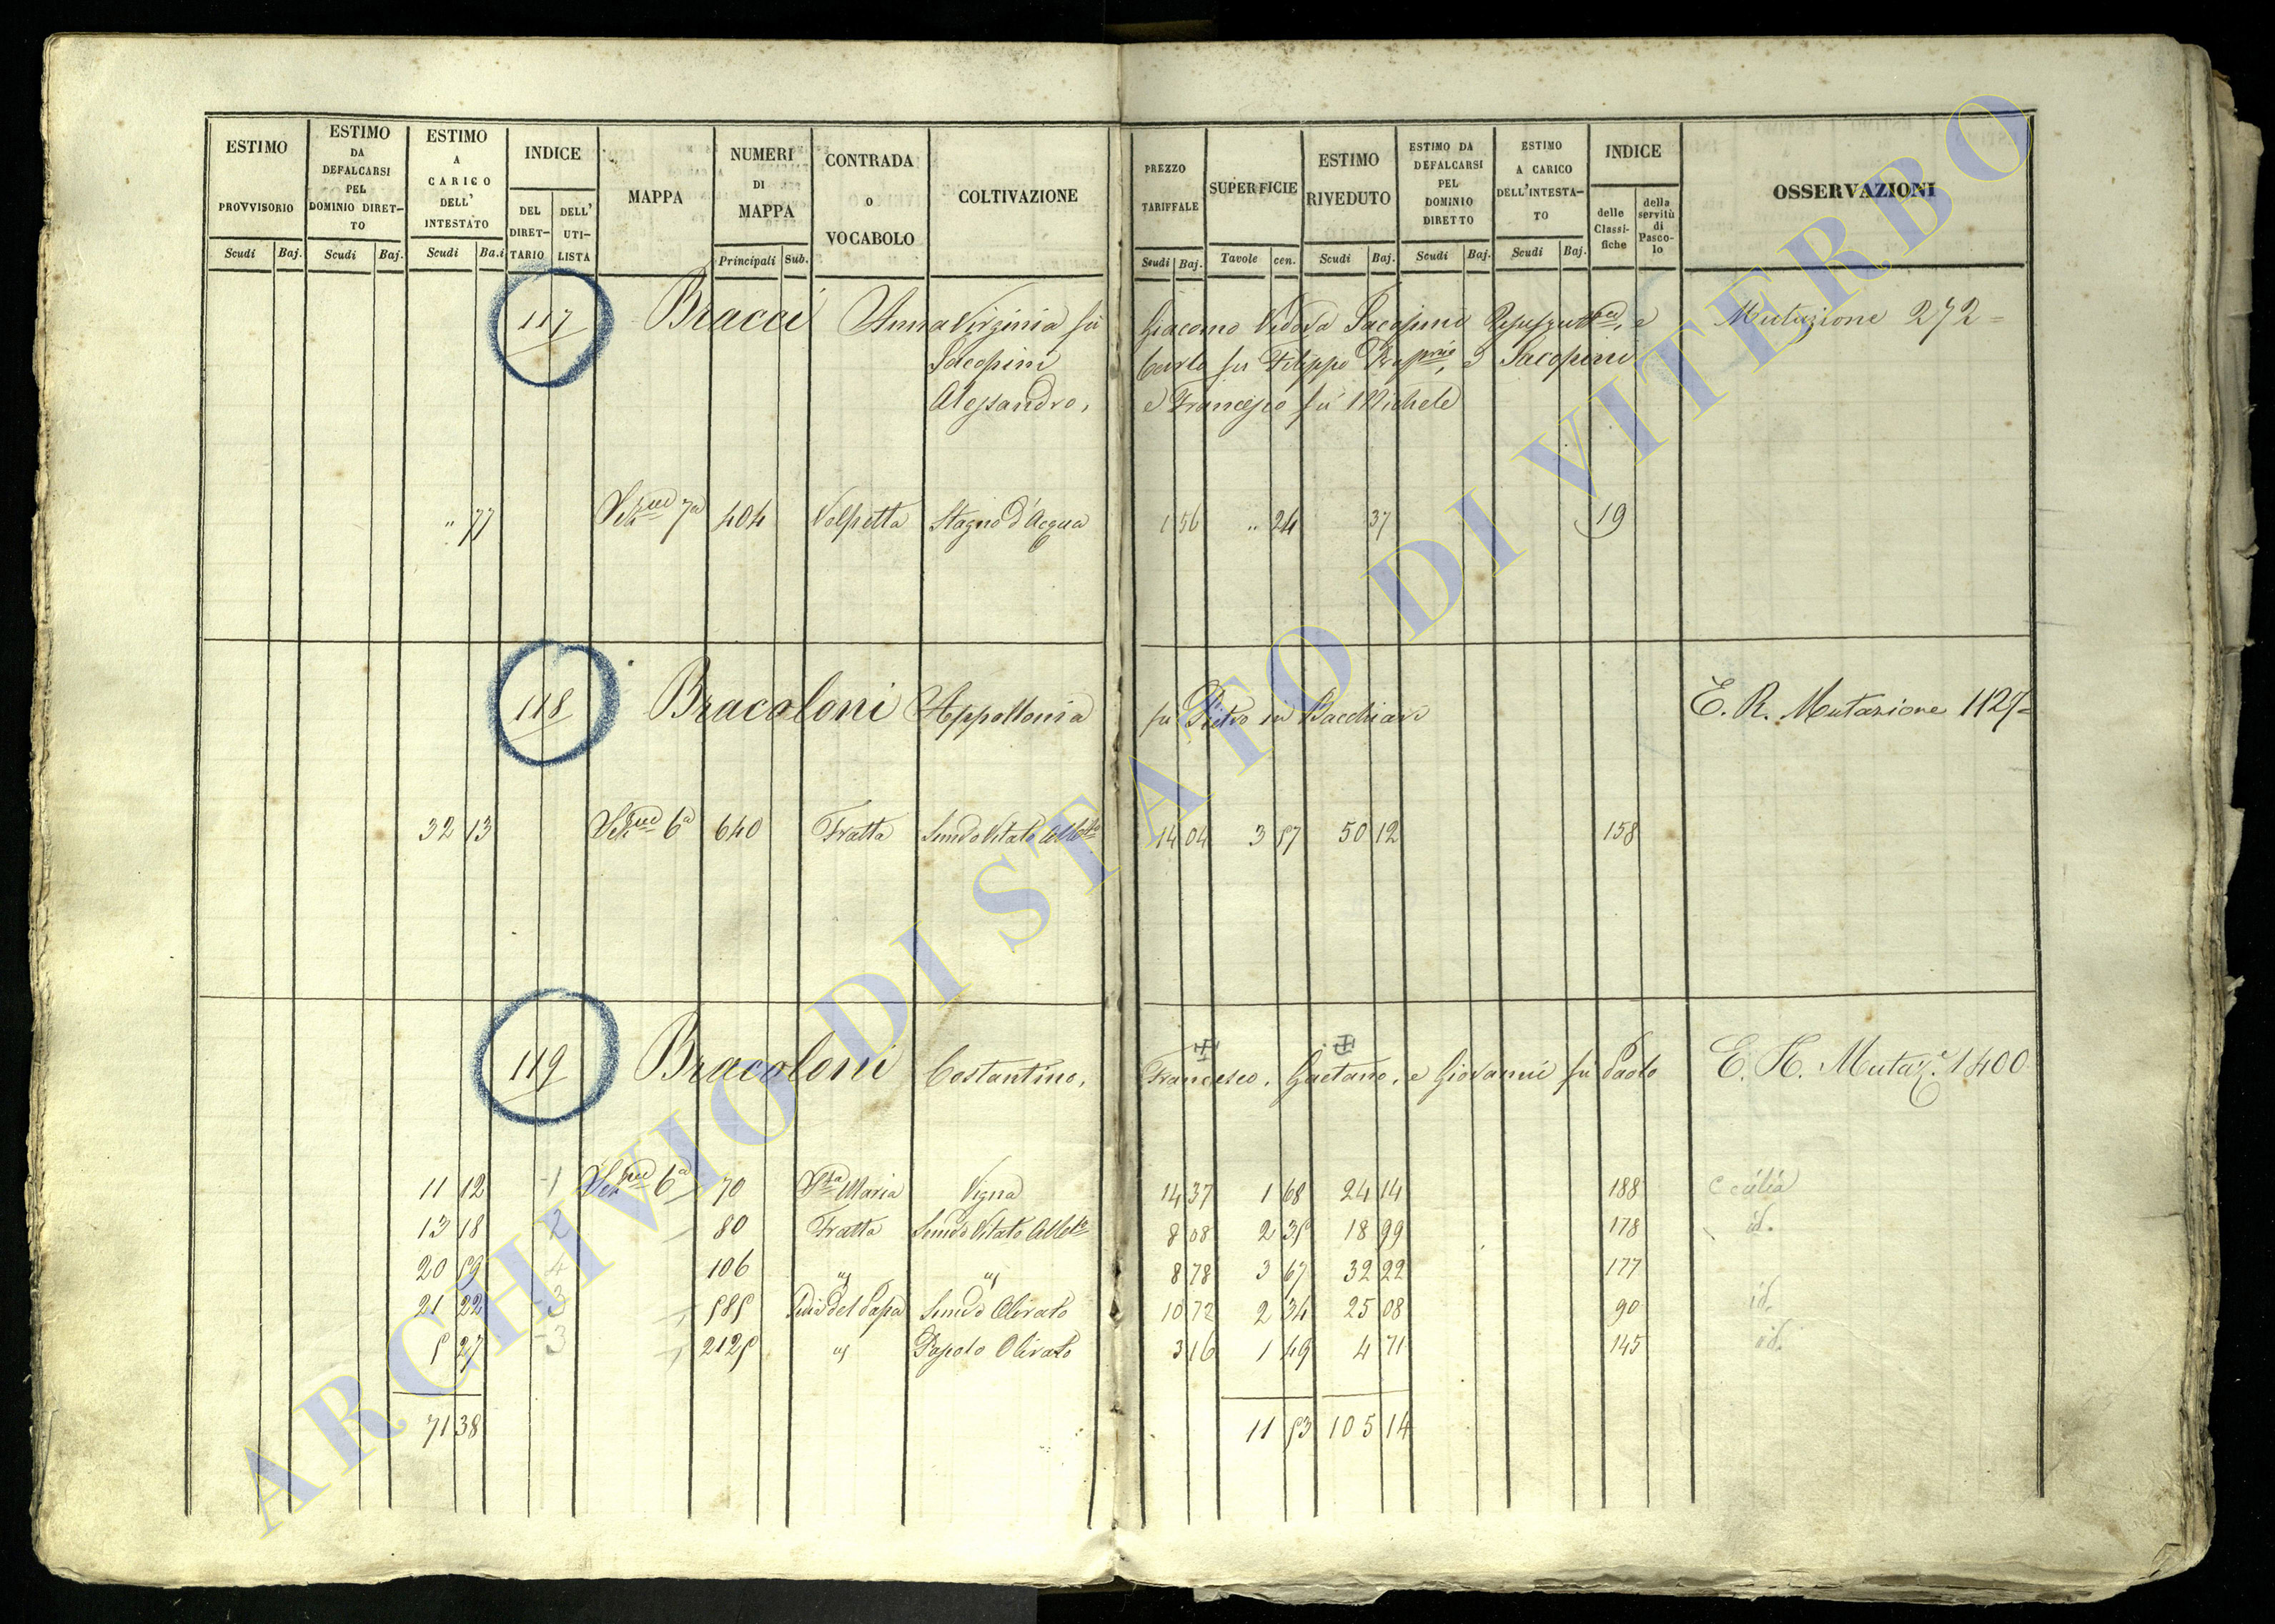 ESTIMO PROVVISORIO
ESTIMO DA DEFALCARSI PEL DOMINIO DIRET-TO
ESTIMO A CARICO DELL' INTESTATO
INDICE
DEL DIRET-TARIO
DELL' UTI-LISTA
MAPPA
NUMERI DI MAPPA
CONTRADA o VOCABOLO
COLTIVAZIONE
PREZZO TARIFFALE
SUPERFICIE
ESTIMO RIVEDUTO
ESTIMO DA DEFALCARSI PEL DOMINIO DIRETTO
ESTIMO A CARICO DELL'INTESTA-TO
INDICE
delle Classi-fiche
della servitù di Pasco-lo
OSSERVAZIONI
Scudi Baj. Scudi Baj. Scudi Ba.i Principali Sub. Scudi Baj. Tavole cen. Scudi Baj. Scudi Baj. Scudi Baj.
117 Bracci Anna Virginia fu Giacomo Vedova Jacopini e Mutazione 272=
Jacopini Carlo fu Filippo e Jacopini
Alessandro, e Francesco fu Michele
" 77 7a 404 Volpetta Stagno d'Acqua 1 56 " 24 37 19
118 Bracaloni Appollonia fu Pietro in Bacchiari E. R. Mutazione 1127=
32 13 6a 640 Fratta 14 04 3 57 50 12 158
119 Bracaloni Costantino, Francesco, Gaetano, e Giovanni fu Paolo E. R. Mutaz.e 1400
11 12 1 6a 70 Sta Maria Vigna 14 37 1 68 24 14 188 Cecilia
13 18 2 80 Fratta 8 08 2 35 18 99 178 id.
20 59 4 106 " " 8 78 3 67 32 22 177
21 22 3 585 del Papa Olivato 10 72 2 34 25 08 90 id.
5 27 3 2125 " Olivato 3 16 1 49 4 71 145 id.
71 38 11 53 105 14
ARCHIVIO DI STATO DI VITERBO